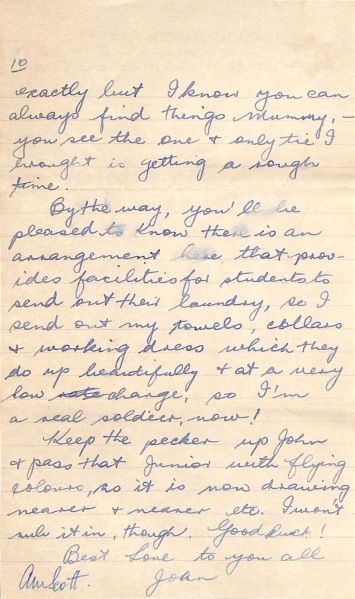 10
exactly but I know you can
always find things Mummy, –
you see the one & only tie I
brought is getting a rough
time.
By the way, you'll be
pleased to know there is an
arrangement here that prov-
ides facilities for students to
send out their laundry, so I
send out my towels, collars
& working dress which they
do up beautifully & at a very
low rate charge, so I'm
a real soldier, now!
Keep the pecker up John
& pass that Junior with flying
colours, as it is now drawing
nearer & nearer etc. I won't
rub it in, though. Good luck!
Best Love to you all
John